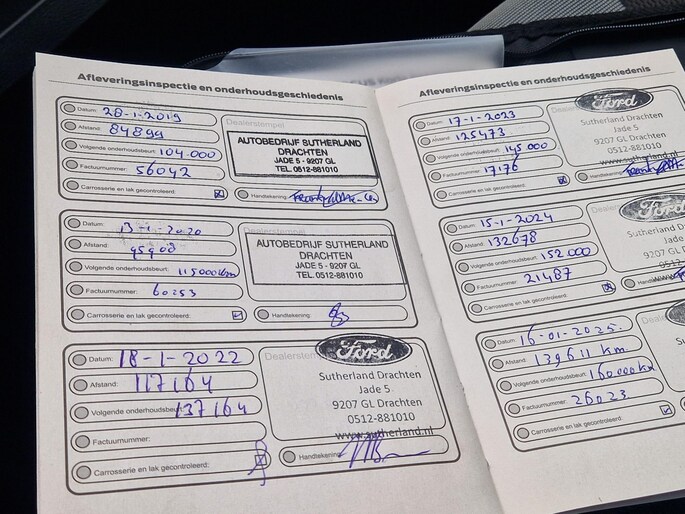 Afleveringsinspectie en onderhoudsgeschiedenis
Datum: 28-1-2019
Afstand: 84899
Volgende onderhoudsbeurt: 104.000
Factuurnummer: 56042
Carrosserie en lak gecontroleerd:
Dealerstempel
AUTOBEDRIJF SUTHERLAND
DRACHTEN
JADE 5 - 9207 GL
TEL.0512-881010
Handtekening:
Datum: 13-1-2020
Afstand: 95908
Volgende onderhoudsbeurt: 115000km
Factuurnummer: 60253
Carrosserie en lak gecontroleerd:
Dealerstempel
AUTOBEDRIJF SUTHERLAND
DRACHTEN
JADE 5 - 9207 GL
TEL.0512-881010
Handtekening:
Datum: 18-1-2022
Afstand: 117164
Volgende onderhoudsbeurt: 137164
Factuurnummer:
Carrosserie en lak gecontroleerd:
Ford
Sutherland Drachten
Jade 5
9207 GL Drachten
0512-881010
www.sutherland.nl
Handtekening:
Afleveringsinspectie en onderhoudsgeschiedenis
Datum: 17-1-2023
Afstand: 125473
Volgende onderhoudsbeurt: 145000
Factuurnummer: 17176
Carrosserie en lak gecontroleerd:
Ford
Sutherland Drachten
Jade 5
9207 GL Drachten
0512-881010
www.sutherland.nl
Handtekening:
Datum: 15-1-2024
Afstand: 132678
Volgende onderhoudsbeurt: 152000
Factuurnummer: 21487
Carrosserie en lak gecontroleerd:
Ford
Sutherland Dra
Jade 5
9207 GL Dra
0512-881
Handtekening:
Datum: 16-01-2025.
Afstand: 139611 km.
Volgende onderhoudsbeurt: 160000km
Factuurnummer: 26023
Carrosserie en lak gecontroleerd:
Suther
9207
05
Handtekening: